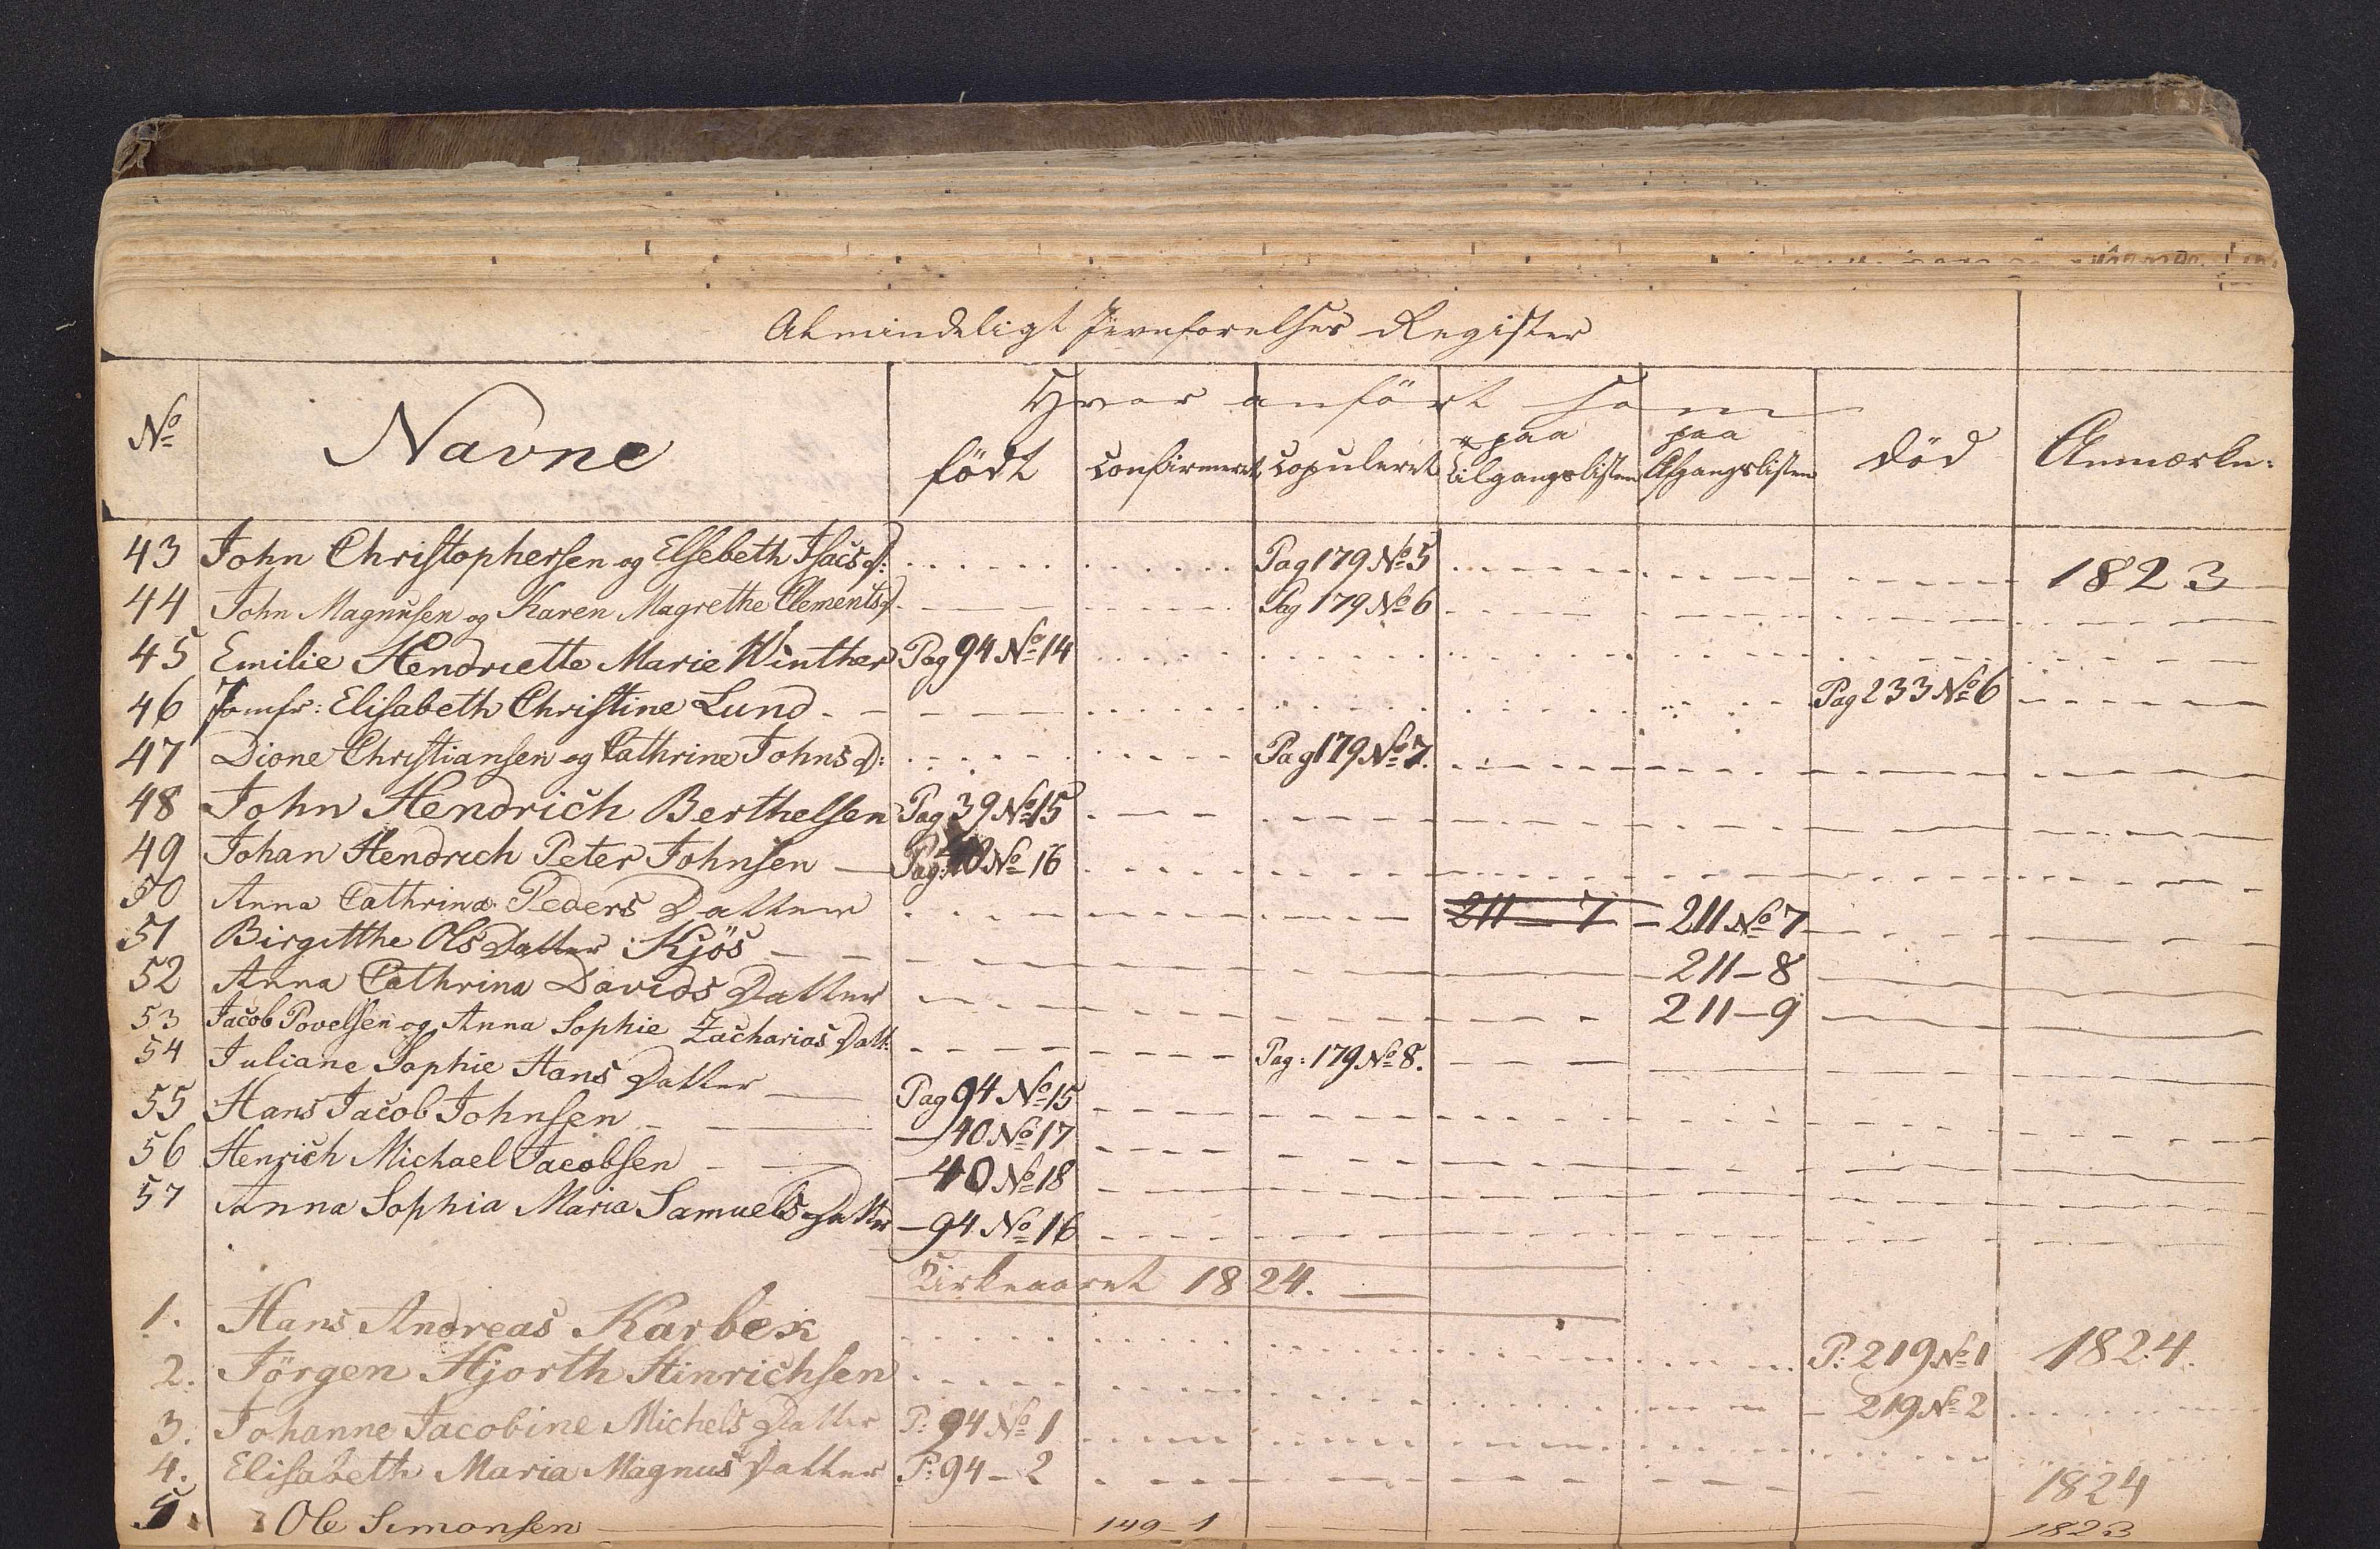 Almindeligt Jevnførelses Register
No Navne Hvor anført som Anmærkn:
født confirmeret copuleret paa Tilgangslisten paa Afgangslisten død
43 John Christophersen og Elsebeth Isacs d: Pag 179 No 5 1823
44 John Magnusen og Karen Magrethe Clements d. Pag 179 No 6
45 Emilie Hendriette Marie Winther Pag 94 No 14
46 Jomfr: Elisabeth Christine Lund Pag 233 No 6
47 Dione Christiansen og Cathrine Johns D: Pag 179 No 7.
48 John Hendrich Berthelsen Pag 39 No 15
49 Johan Hendrich Peter Johnsen Pag: 40 No 16
50 Anna Cathrina Peders Datter 211 — 7 211 No 7
51 Birgitthe Ols Datter Kjös 211 – 8
52 Anna Cathrina Davids Datter 211 – 9
53 Jacob Povelsen og Anna Sophie Zacharias Datt: Pag: 179 No 8.
54 Juliane Sophie Hans Datter Pag 94 No 15
55 Hans Jacob Johnsen — 40 No 17
56 Henrich Michael Jacobsen — 40 No 18
57 Anna Sophia Maria Samuels Datter — 94 No 16
Kirkeaaret 1824.
1. Hans Andreas Karbek P: 219 No 1 1824.
2. Jörgen Hjorth Hinrichsen 219 No 2
3. Johanne Jacobine Michels Datter P: 94 No 1
4. Elisabeth Maria Magnus Datter P: 94 – 2 1824
5. Ole Simonsen 149 – 1 1823